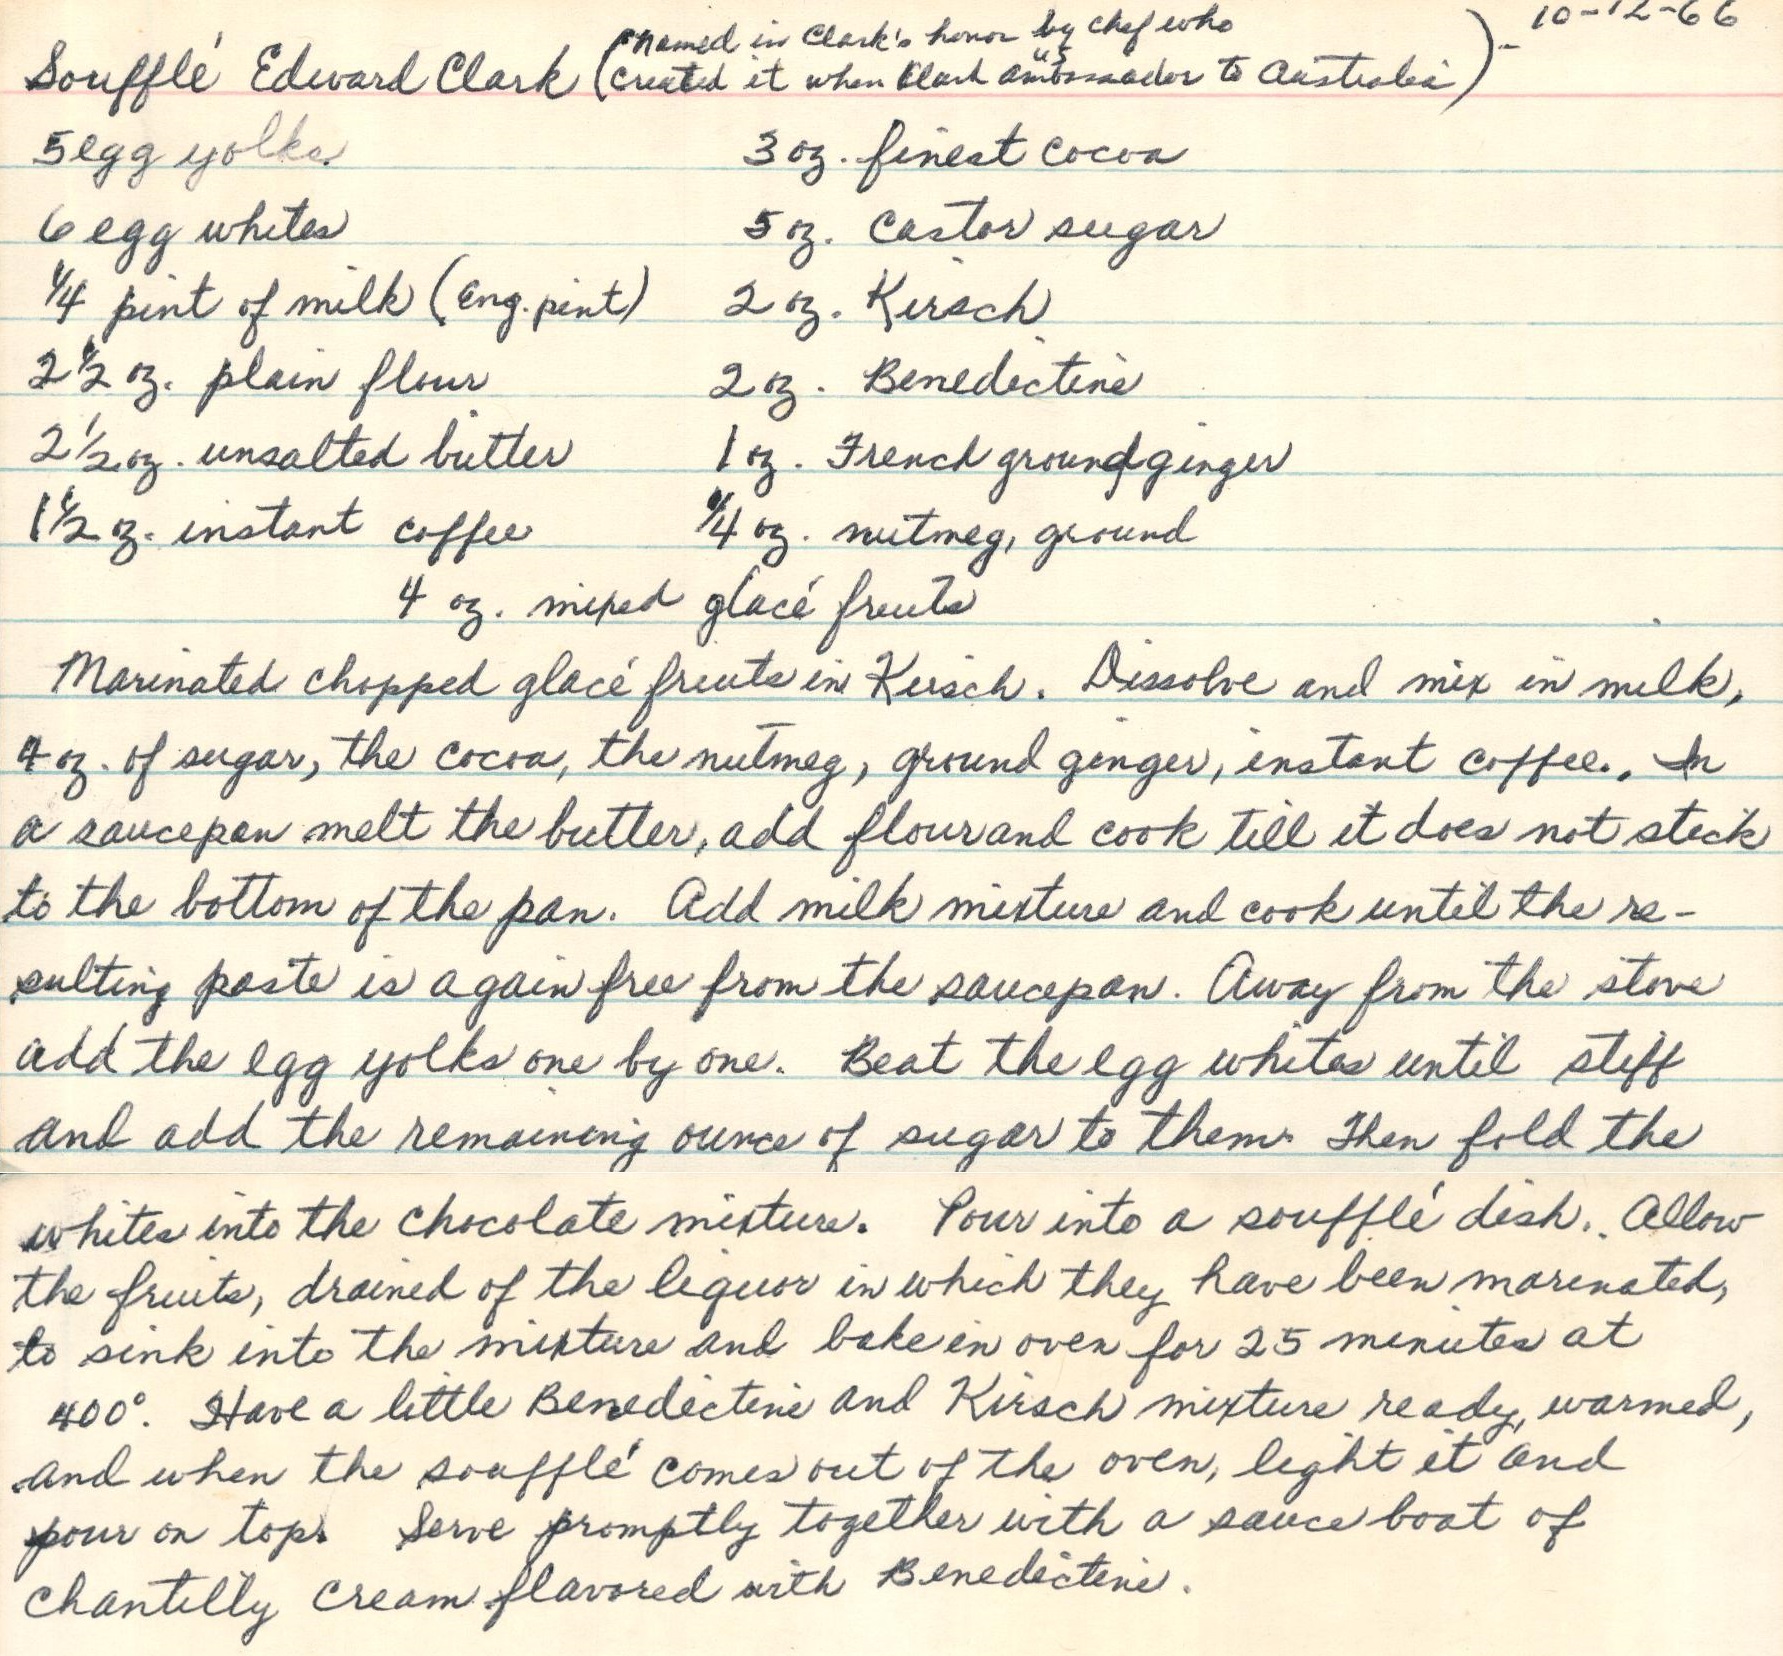 10-12-66
(named in Clark's honor by chef who
Soufflé Edward Clark (created it when Clark U.S. ambassador to Australia)-
5 egg yolks 3 oz. finest cocoa
6 egg whites 5 oz. castor sugar
1/4 pint of milk (Eng. pint) 2 oz. Kirsch
2 1/2 oz. plain flour 2 oz. Benedictine
2 1/2 oz. unsalted butter 1 oz. French ground ginger
1 1/2 oz. instant coffee 1/4 oz. nutmeg, ground
4 oz. mixed glacé fruits
Marinated chopped glacé fruits in Kirsch. Dissolve and mix in milk,
4 oz. of sugar, the cocoa, the nutmeg, ground ginger, instant coffee. In
a saucepan melt the butter, add flour and cook till it does not stick
to the bottom of the pan. Add milk mixture and cook until the re-
sulting paste is again free from the saucepan. Away from the stove
add the egg yolks one by one. Beat the egg whites until stiff
and add the remaining ounce of sugar to them. Then fold the
whites into the chocolate mixture. Pour into a soufflé dish. Allow
the fruits, drained of the liquor in which they have been marinated,
to sink into the mixture and bake in oven for 25 minutes at
400°. Have a little Benedictine and Kirsch mixture ready, warmed,
and when the soufflé comes out of the oven, light it and
pour on top. Serve promptly together with a sauce boat of
Chantilly cream flavored with Benedictine.